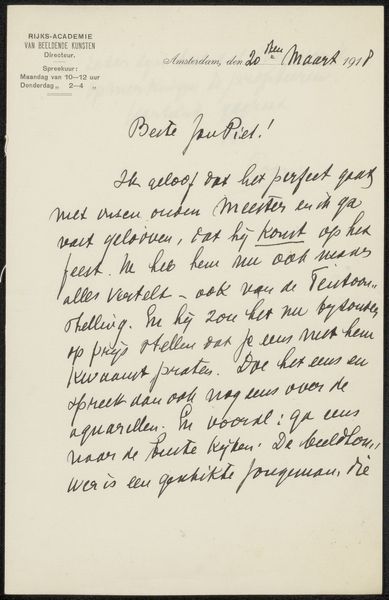 RIJKS-ACADEMIE
VAN BEELDENDE KUNSTEN
Directeur.
Spreekuur:
Maandag van 10–12 uur
Donderdag „ 2–4 „
Amsterdam, den 20sten Maart 1918
Beste Jan Piet!
Ik geloof dat het perfect gaat
met onzen ouden Meester en ik ga
vast gelooven, dat hij komt op het
feest. Ik heb hem nu ook
alles verteld – ook van de Tentoon-
stelling. En hij zou het nu byzonder
op prijs stellen dat je eens met hem
kwaamt praten. Doe het eens en
spreek dan ook nog eens over de
aquarellen. En vooral: ga eens
naar de buste kijken. De beeldhou-
wer is een geschikte jongeman, die